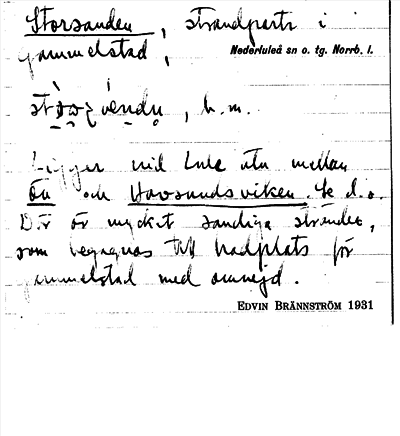 Storsanden, strandparti i
Gammelstad,
Nederluleå sn o. tg. Norrb. l.
b. m.
Ligger vid Lule älv mellan
Ön och Havsundsviken. Se d. o.
Där är mycket sandiga stränder,
som begagnas till badplats för
Gammelstad med omnejd.
EDVIN BRÄNNSTRÖM 1931